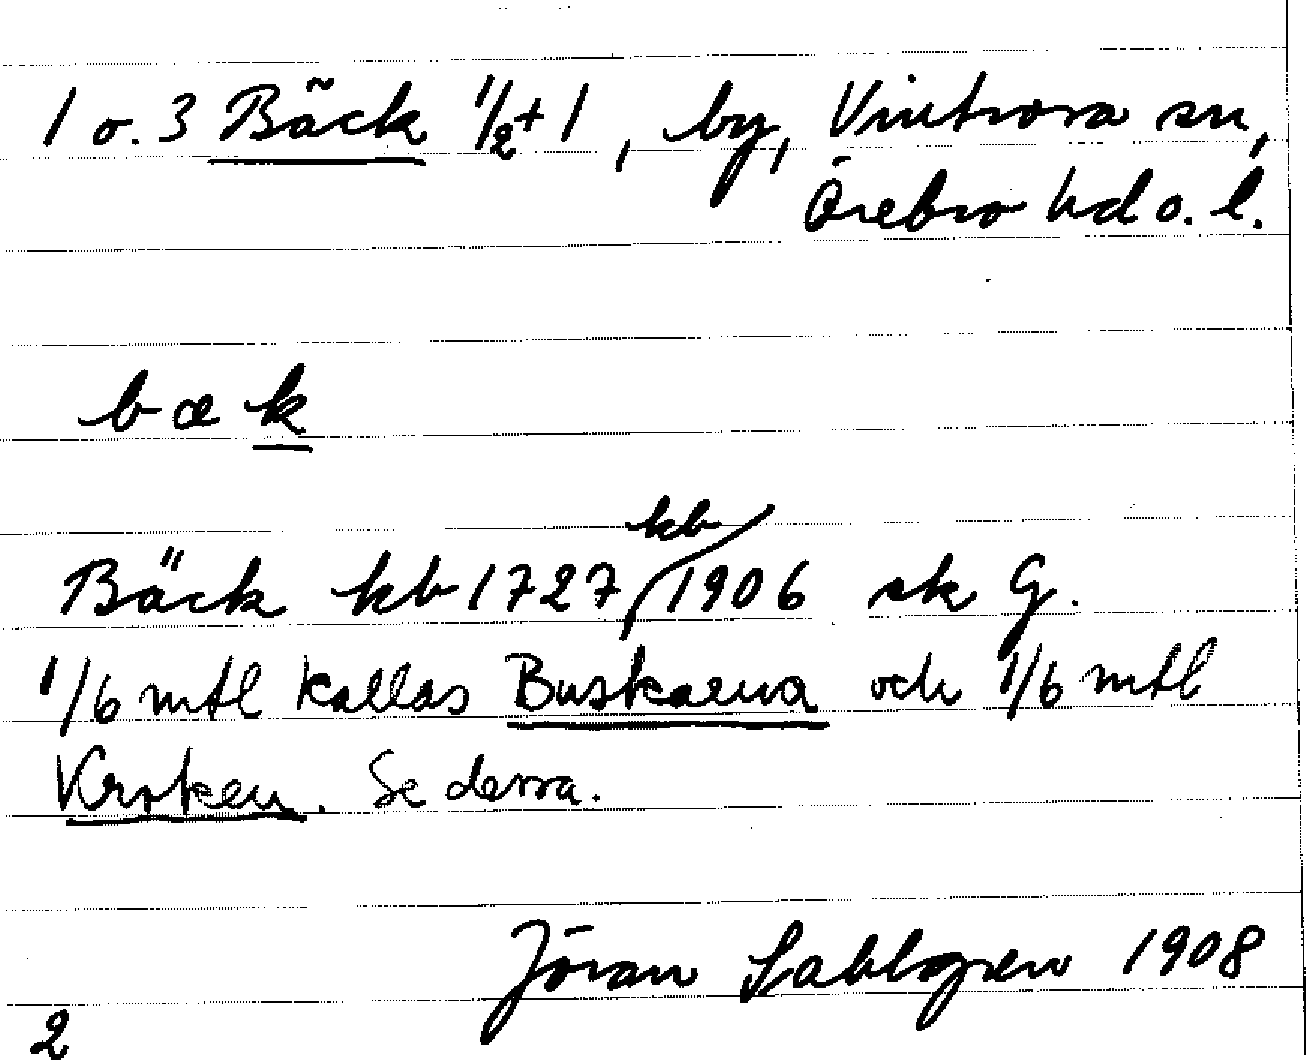 1 o. 3 Bäck 1/2 + 1, by, Vintrosa sn,
Örebro hd o. l.
bæk
kb
Bäck kb 1727 / 1906 sk G.
1/6 mtl kallas Buskarna och 1/6 mtl
Kroken. Se dessa.
Jöran Sahlgren 1908
2